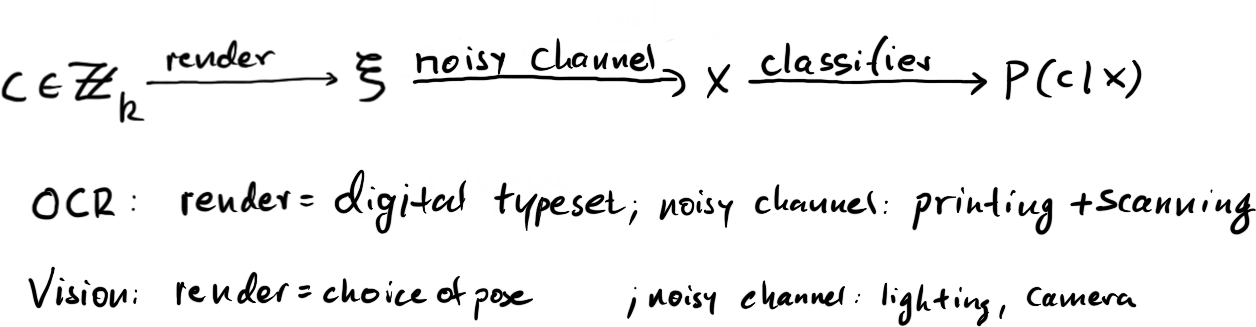 c ∈ ℤ_k —render→ ξ —noisy channel→ x —classifier→ P(c|x)
OCR: render = digital typeset; noisy channel: printing + scanning
Vision: render = choice of pose ; noisy channel: lighting, camera